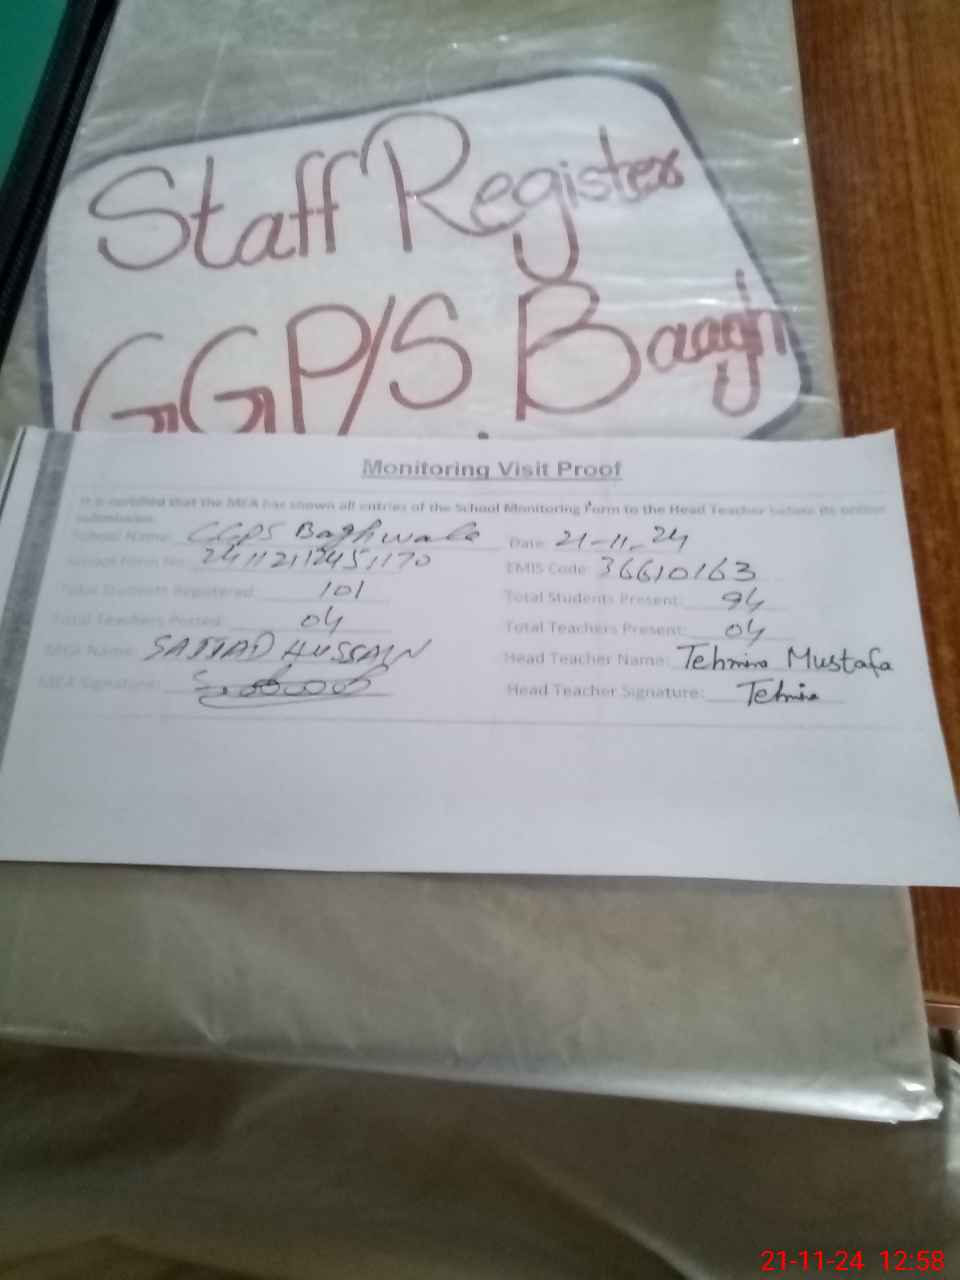 Staff Register
GGP/S. Baagh
Monitoring Visit Proof
It is certified that the MEA has shown all entries of the School Monitoring Form to the Head Teacher before its online
submission.
School Name: GGPS Baghwala Date: 21-11-24
School Form No: 24112112451170 EMIS Code: 36610163
Total Students Registered: 101 Total Students Present: 94
Total Teachers Posted: 04 Total Teachers Present: 04
MEA Name: SAJJAD HUSSAIN Head Teacher Name: Tehmina Mustafa
MEA Signature: Head Teacher Signature: Tehmina
21-11-24 12:58